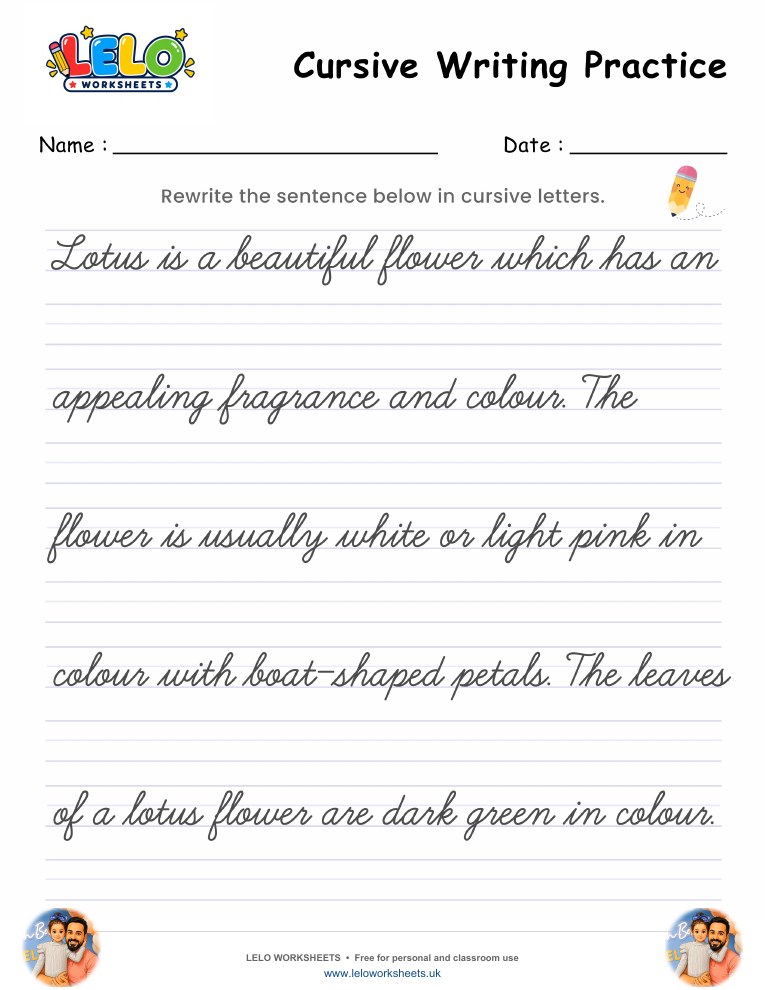 LELO
WORKSHEETS
Cursive Writing Practice
Name : Date :
Rewrite the sentence below in cursive letters.
Lotus is a beautiful flower which has an
appealing fragrance and colour. The
flower is usually white or light pink in
colour with boat-shaped petals. The leaves
of a lotus flower are dark green in colour.
LELO WORKSHEETS • Free for personal and classroom use
www.leloworksheets.uk